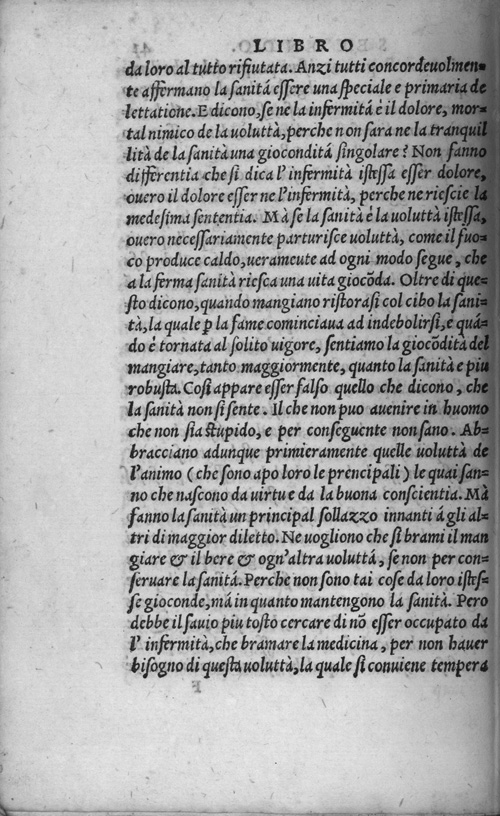 LIBRO
da loro al tutto rifiutata. Anzi tutti concordeuolmen-
te affermano la sanitá essere una speciale e primaria de
lettatione. E dicono, se ne la infermitá è il dolore, mor-
tal nimico de la voluttà, perche non sara ne la tranquil
lità de la sanità una gioconditá singolare? Non fanno
differentia che si dica l'infermità istessa esser dolore,
ouero il dolore esser ne l'infermità, perche ne riescie la
medesima sententia. Mà se la sanità è la uoluttà istessa,
ouero necessariamente parturisce uoluttà, come il fuo-
co produce caldo, ueramente ad ogni modo segue, che
a la ferma sanità riesca una uita giocōda. Oltre di que-
sto dicono, quando mangiano ristorasi col cibo la sani-
tà, la quale ꝑ la fame cominciaua ad indebolirsi, e quā-
do è tornata al solito uigore, sentiamo la giocōdità del
mangiare, tanto maggiormente, quanto la sanità e piu
robusta. Cosi appare esser falso quello che dicono, che
la sanità non si sente. Il che non puo auenire in huomo
che non sia stupido, e per conseguente non sano. Ab-
bracciano adunque primieramente quelle uoluttà de
l'animo (che sono apo loro le prencipali) le quai san-
no che nascono da uirtu e da la buona conscientia. Mà
fanno la sanità un principal sollazzo innanti á gli al-
tri di maggior diletto. Ne uogliono che si brami il man
giare & il bere & ogn'altra uoluttá, se non per con-
seruare la sanitá. Perche non sono tai cose da loro istes-
se gioconde, má in quanto mantengono la sanità. Pero
debbe il sauio piu tosto cercare di nō esser occupato da
l'infermità, che bramare la medicina, per non hauer
bisogno di questa uoluttà, la quale si conuiene tempera